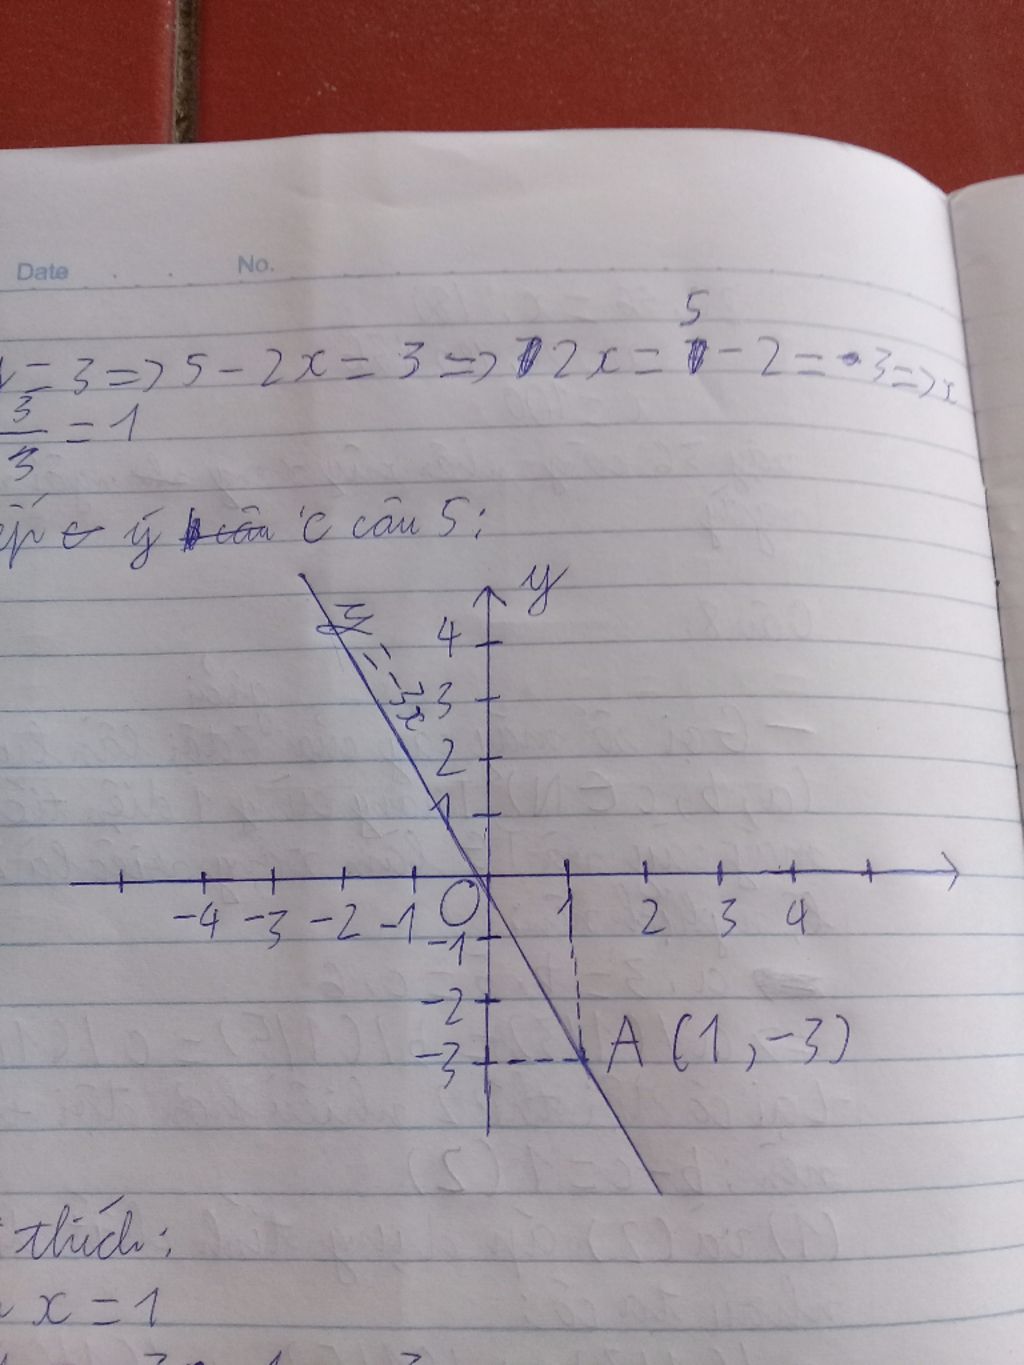 Date No.
= 3 => 5 - 2x = 3 => 2x = 5 - 2 = 3 => x
3/3 = 1
ý c câu 5:
y
y = -3x
4
3
2
1
-4 -3 -2 -1 O 1 2 3 4
-1
-2
-3 A (1, -3)
thích:
x = 1